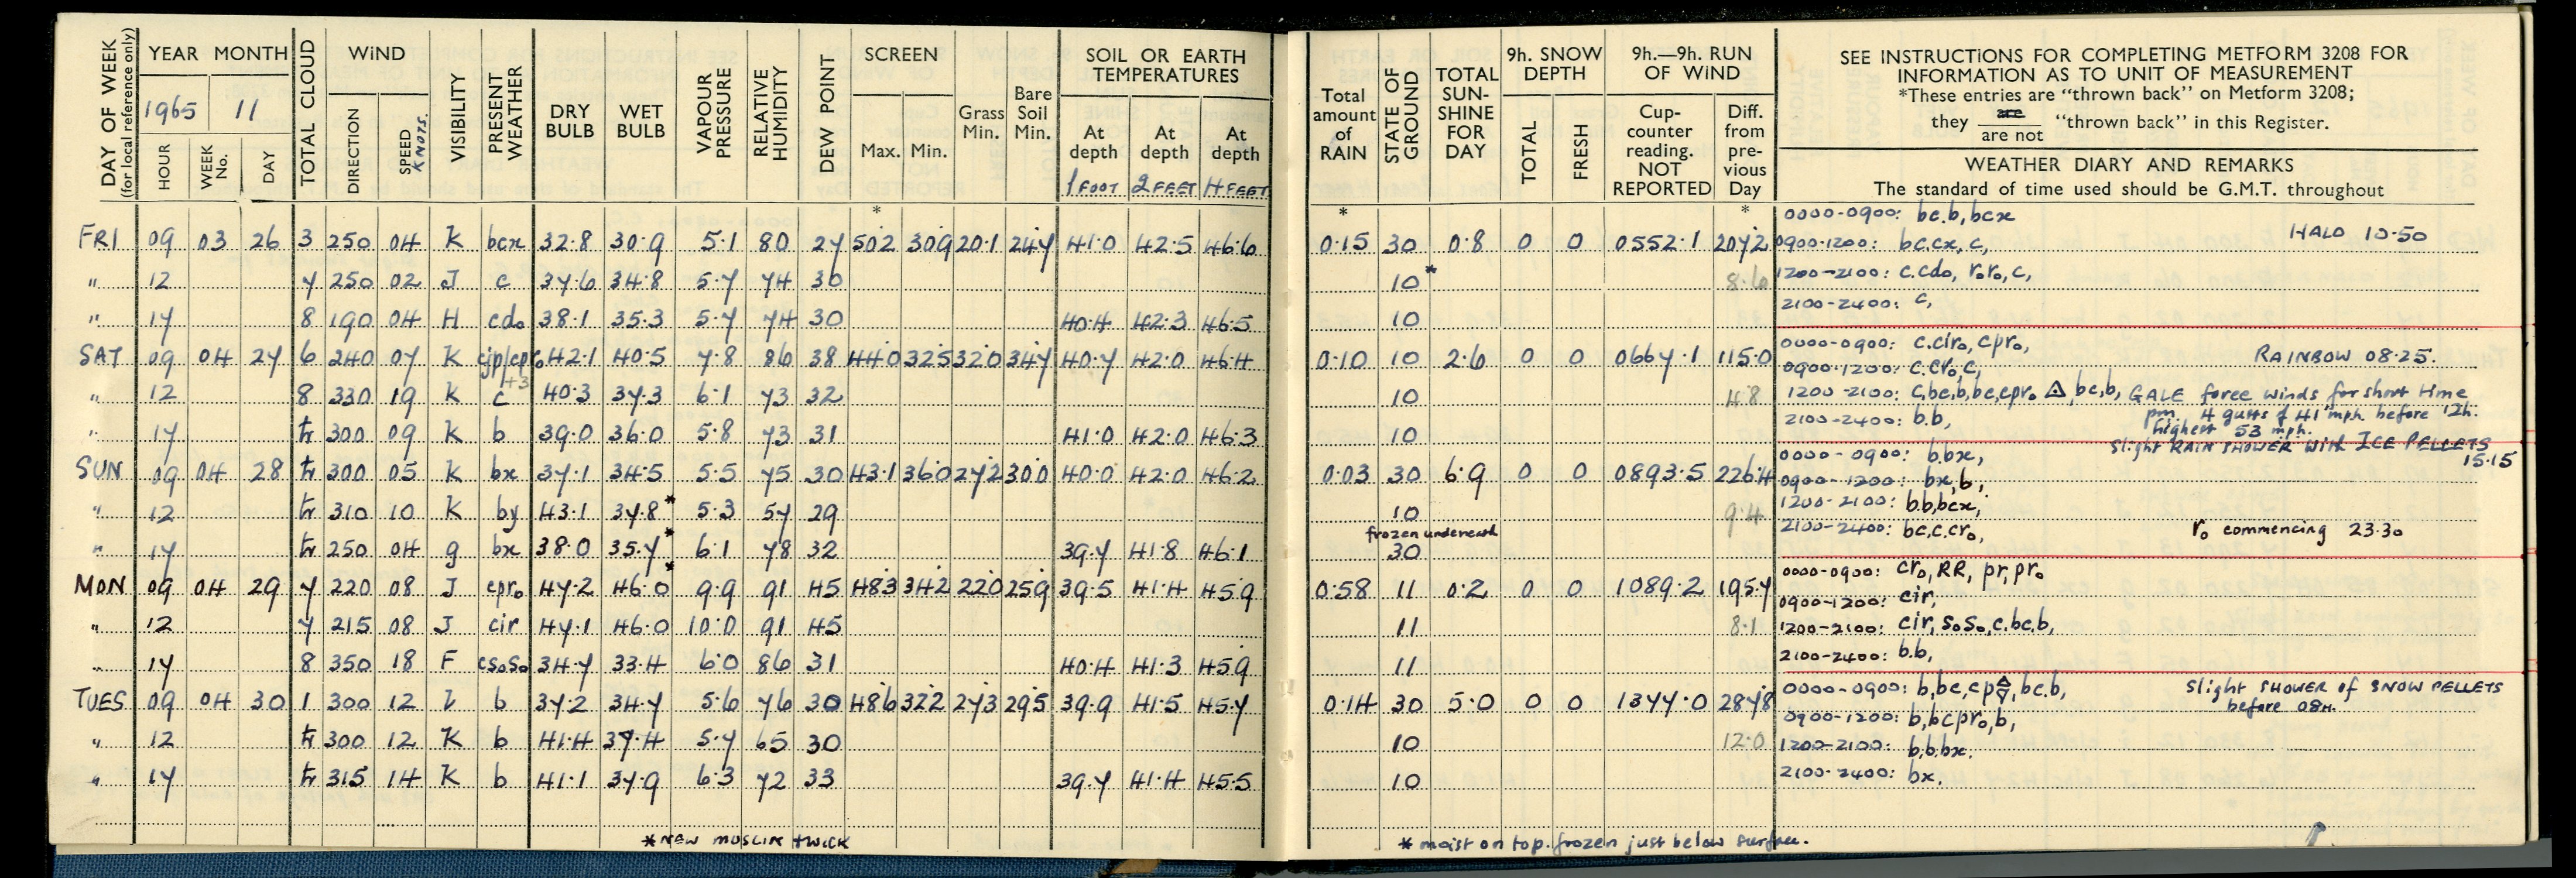 DAY OF WEEK (for local reference only) YEAR MONTH TOTAL CLOUD WIND VISIBILITY PRESENT WEATHER DRY BULB WET BULB VAPOUR PRESSURE RELATIVE HUMIDITY DEW POINT SCREEN Grass Min. Bare Soil Min. SOIL OR EARTH TEMPERATURES
1965 11
HOUR WEEK No. DAY DIRECTION SPEED KNOTS. Max. Min. At depth At depth At depth
1 FOOT 2 FEET 4 FEET
Total amount of RAIN STATE OF GROUND TOTAL SUN-SHINE FOR DAY 9h. SNOW DEPTH 9h.—9h. RUN OF WIND
TOTAL FRESH Cup-counter reading. NOT REPORTED Diff. from pre-vious Day
SEE INSTRUCTIONS FOR COMPLETING METFORM 3208 FOR
INFORMATION AS TO UNIT OF MEASUREMENT
*These entries are "thrown back" on Metform 3208;
they are / are not "thrown back" in this Register.
WEATHER DIARY AND REMARKS
The standard of time used should be G.M.T. throughout
* * *
FRI 09 03 26 3 250 04 K bcx 32.8 30.9 5.1 80 27 50.2 30.9 20.1 24.7 41.0 42.5 46.6 0.15 30 0.8 0 0 0552.1 207.2
0000-0900: bc.b, bcx
0900-1200: bc.cx, c, HALO 10.50
" 12 7 250 02 J c 37.6 34.8 5.7 74 30 10* 8.6 1200-2100: c.cdo, roro, c,
2100-2400: c,
" 17 8 190 04 H cdo 38.1 35.3 5.7 74 30 40.4 42.3 46.5 10
SAT 09 04 27 6 240 07 K cjp/cpro 42.1 40.5 7.8 86 38 44.0 32.5 32.0 34.7 40.7 42.0 46.4 0.10 10 2.6 0 0 0667.1 115.0
0000-0900: c.ciro, cpro,
0900-1200: c.cro, c, RAINBOW 08.25.
" 12 8 330 19 K c 40.3 37.3 6.1 73 32 10 4.8
1200-2100: c,bc,b,bc,cpro △, bc,b, GALE force winds for short time
pm. 4 gusts of 41 mph before 12h.
highest 53 mph.
2100-2400: b.b,
Slight RAIN SHOWER WITH ICE PELLETS
15.15
" 17 tr 300 09 K b 39.0 36.0 5.8 73 31 41.0 42.0 46.3 10
SUN 09 04 28 tr 300 05 K bx 37.1 34.5 5.5 75 30 43.1 36.0 27.2 30.0 40.0 42.0 46.2 0.03 30 6.9 0 0 0893.5 226.4
0000-0900: b.bx,
0900-1200: bx,b,
" 12 tr 310 10 K by 43.1 37.8* 5.3 57 29 10 9.4
1200-2100: b.b,bcx,
2100-2400: bc,c.cro, ro commencing 23.30
frozen underneath
" 17 tr 250 04 g bx 38.0 35.7* 6.1 78 32 39.7 41.8 46.1 30
MON 09 04 29 7 220 08 J cpro 47.2 46.0* 9.9 91 45 48.3 34.2 22.0 25.9 39.5 41.4 45.9 0.58 11 0.2 0 0 1089.2 195.7
0000-0900: cro, RR, pr, pro
0900-1200: cir,
" 12 7 215 08 J cir 47.1 46.0 10.0 91 45 11 8.1 1200-2100: cir, soso, c.bc,b,
" 17 8 350 18 F csoso 34.7 33.4 6.0 86 31 40.4 41.3 45.9 11 2100-2400: b.b,
TUES 09 04 30 1 300 12 b 37.2 34.7 5.6 76 30 48.6 32.2 27.3 29.5 39.9 41.5 45.7 0.14 30 5.0 0 0 1377.0 287.8
0000-0900: b,bc,cp△▽, bc,b, Slight SHOWER of SNOW PELLETS
before 08H.
0900-1200: b,bcpro,b,
" 12 tr 300 12 K b 41.4 37.4 5.7 65 30 10 12.0 1200-2100: b,b,bx.
" 17 tr 315 14 K b 41.1 37.9 6.3 72 33 39.7 41.4 45.5 10 2100-2400: bx.
* NEW MUSLIN + WICK
* moist on top. frozen just below surface.